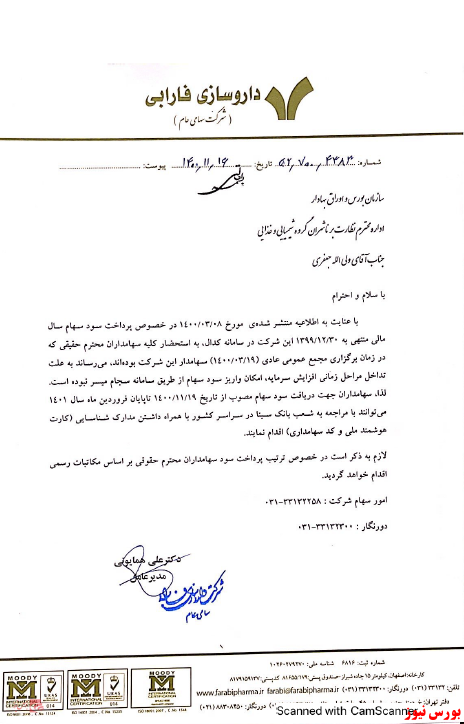 داروسازی فارابی
( شرکت سهامی عام )
شماره: ۵۲,۷۰۰,۴۳۸۳ تاریخ: ۱۴۰۰,۱۱,۱۶ پیوست:
سازمان بورس و اوراق بهادار
اداره محترم نظارت بر ناشران گروه شیمیایی و غذایی
جناب آقای ولی الله جعفری
با سلام و احترام
با عنایت به اطلاعیه منتشر شده‌ی مورخ ۱۴۰۰/۰۳/۰۸ در خصوص پرداخت سود سهام سال
مالی منتهی به ۱۳۹۹/۱۲/۳۰ این شرکت در سامانه کدال، به استحضار کلیه سهامداران محترم حقیقی که
در زمان برگزاری مجمع عمومی عادی (۱۴۰۰/۰۳/۱۹) سهامدار این شرکت بوده‌اند، می‌رساند به علت
تداخل مراحل زمانی افزایش سرمایه، امکان واریز سود سهام از طریق سامانه سجام میسر نبوده است.
لذا، سهامداران جهت دریافت سود سهام مصوب از تاریخ ۱۴۰۰/۱۱/۱۹ تاپایان فروردین ماه سال ۱۴۰۱
می‌توانند با مراجعه به شعب بانک سینا در سراسر کشور با همراه داشتن مدارک شناسایی (کارت
هوشمند ملی و کد سهامداری) اقدام نمایند.
لازم به ذکر است در خصوص ترتیب پرداخت سود سهامداران محترم حقوقی بر اساس مکاتبات رسمی
اقدام خواهد گردید.
امور سهام شرکت : ۳۳۱۳۲۲۵۸-۰۳۱
دورنگار : ۳۳۱۳۲۳۰۰-۰۳۱
دکتر علی همایونی
مدیرعامل
شرکت داروسازی فارابی
سهامی عام
۱
شماره ثبت: ۶۸۱۶ شناسه ملی:
کارخانه:اصفهان، کیلومتر ۱۵ جاده شیراز-صندوق پستی:
تلفن: ۳۳۱۳۲ (۰۳۱) دورنگار:
www.farabipharma.ir farabi@farabipharma.ir
دفتر تهران:
MOODY
INTERNATIONAL
CERTIFICATION
UKAS
014
MOODY
INTERNATIONAL
CERTIFICATION
UKAS
014
MOODY
INTERNATIONAL
CERTIFICATION
Scanned with CamScanner
بورس نیوز